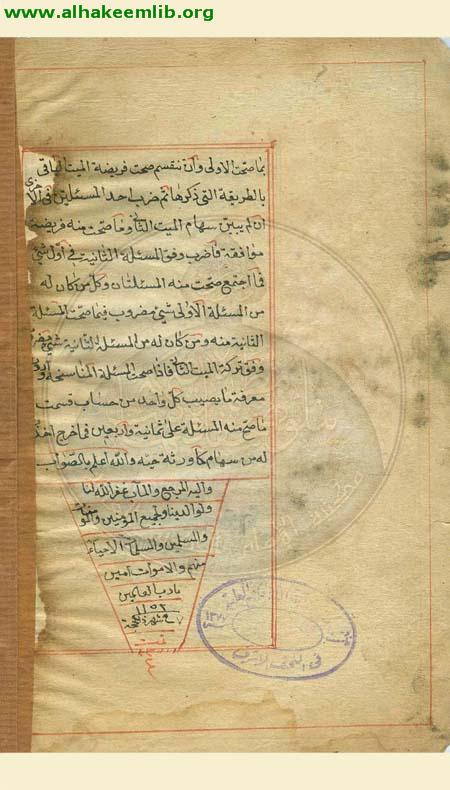 www.alhakeemlib.org
بما صحت الاولى وان تنقسم صحت فريضة الميت الباقي
بالطريقة التي ذكرها ثم ضرب احد المسئلتين في الاخرى
ان لم يبين سهام الميت الثاني وما صحت منه فريضة
موافقة فاضرب وفق المسئلة الثانية في اول شي
فما اجتمع صحت منه المسئلتان وكل من كان له
من المسئلة الاولى شيء مضروب فيما صحت المسئلة
الثانية منه ومن كان له من المسئلة الثانية شيء
وفق تركة الميت الثاني فاذا صحت المسئلة المناسخة
معرفة ما يصيب كل واحد من حساب قسمت
ما صح منه المسئلة على ثمانية واربعين فما خرج اخذ
له من سهام كل ورثة حبه والله اعلم بالصواب
واليه المرجع والمآب غفر الله لنا
ولوالدينا ولجميع المؤمنين والمؤمنات
والمسلمين والمسلمات الاحياء
منهم والاموات امين
يا رب العالمين
١١٥٢
تمت